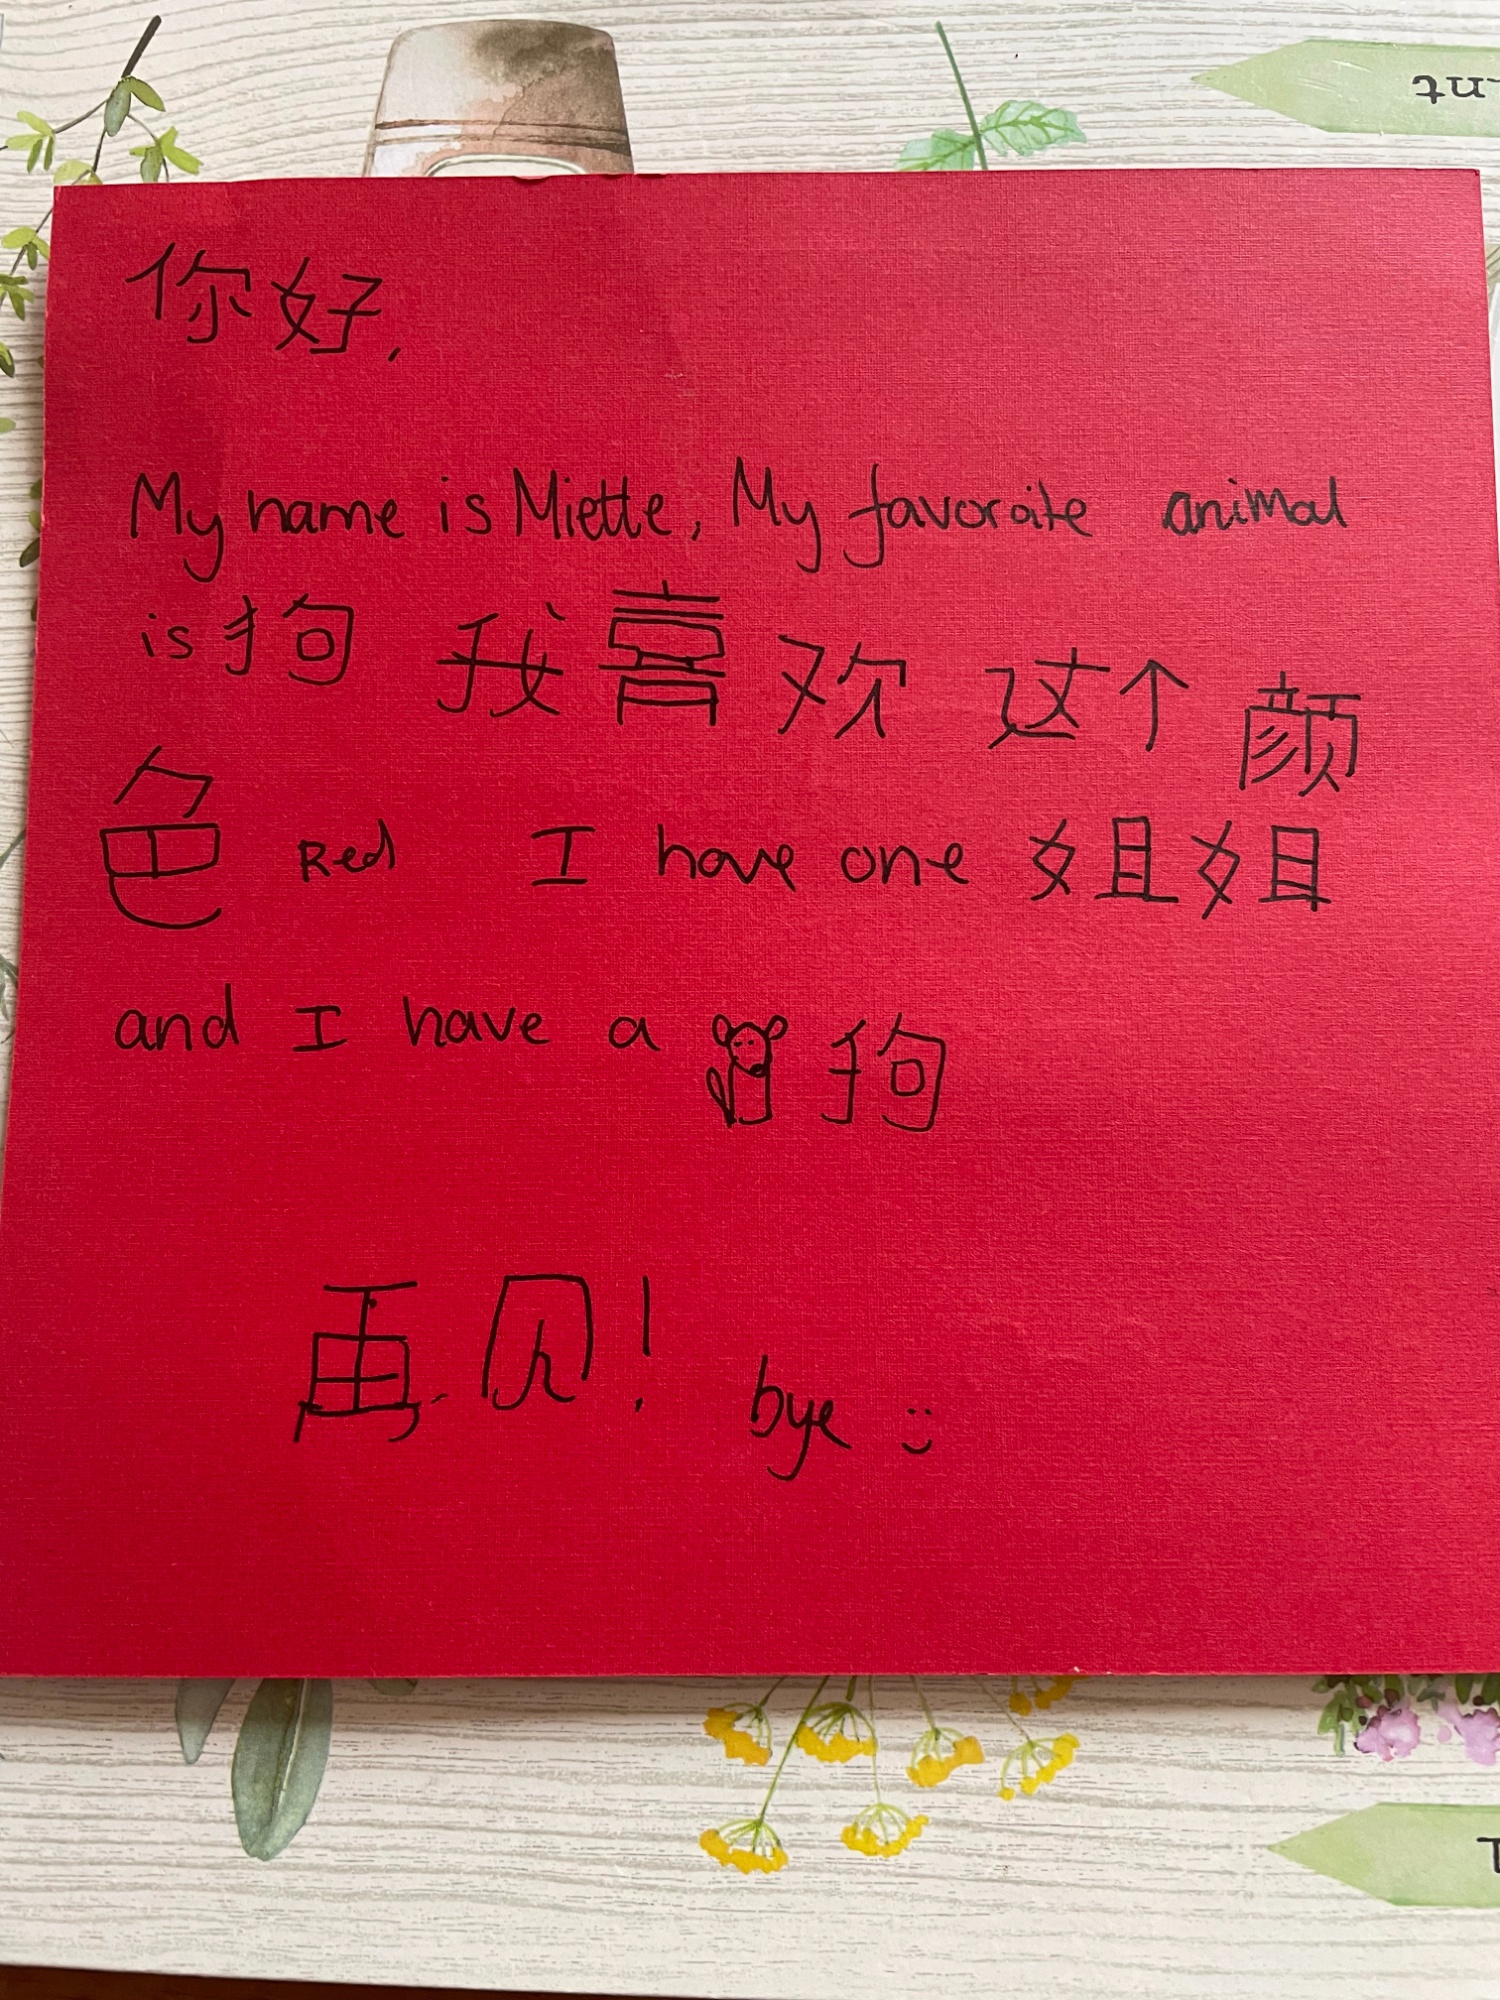 你好,
My name is Miette, My favoraite animal
is 狗 我喜欢 这个 颜
色 Red I have one 姐姐
and I have a 狗
再见! bye :)